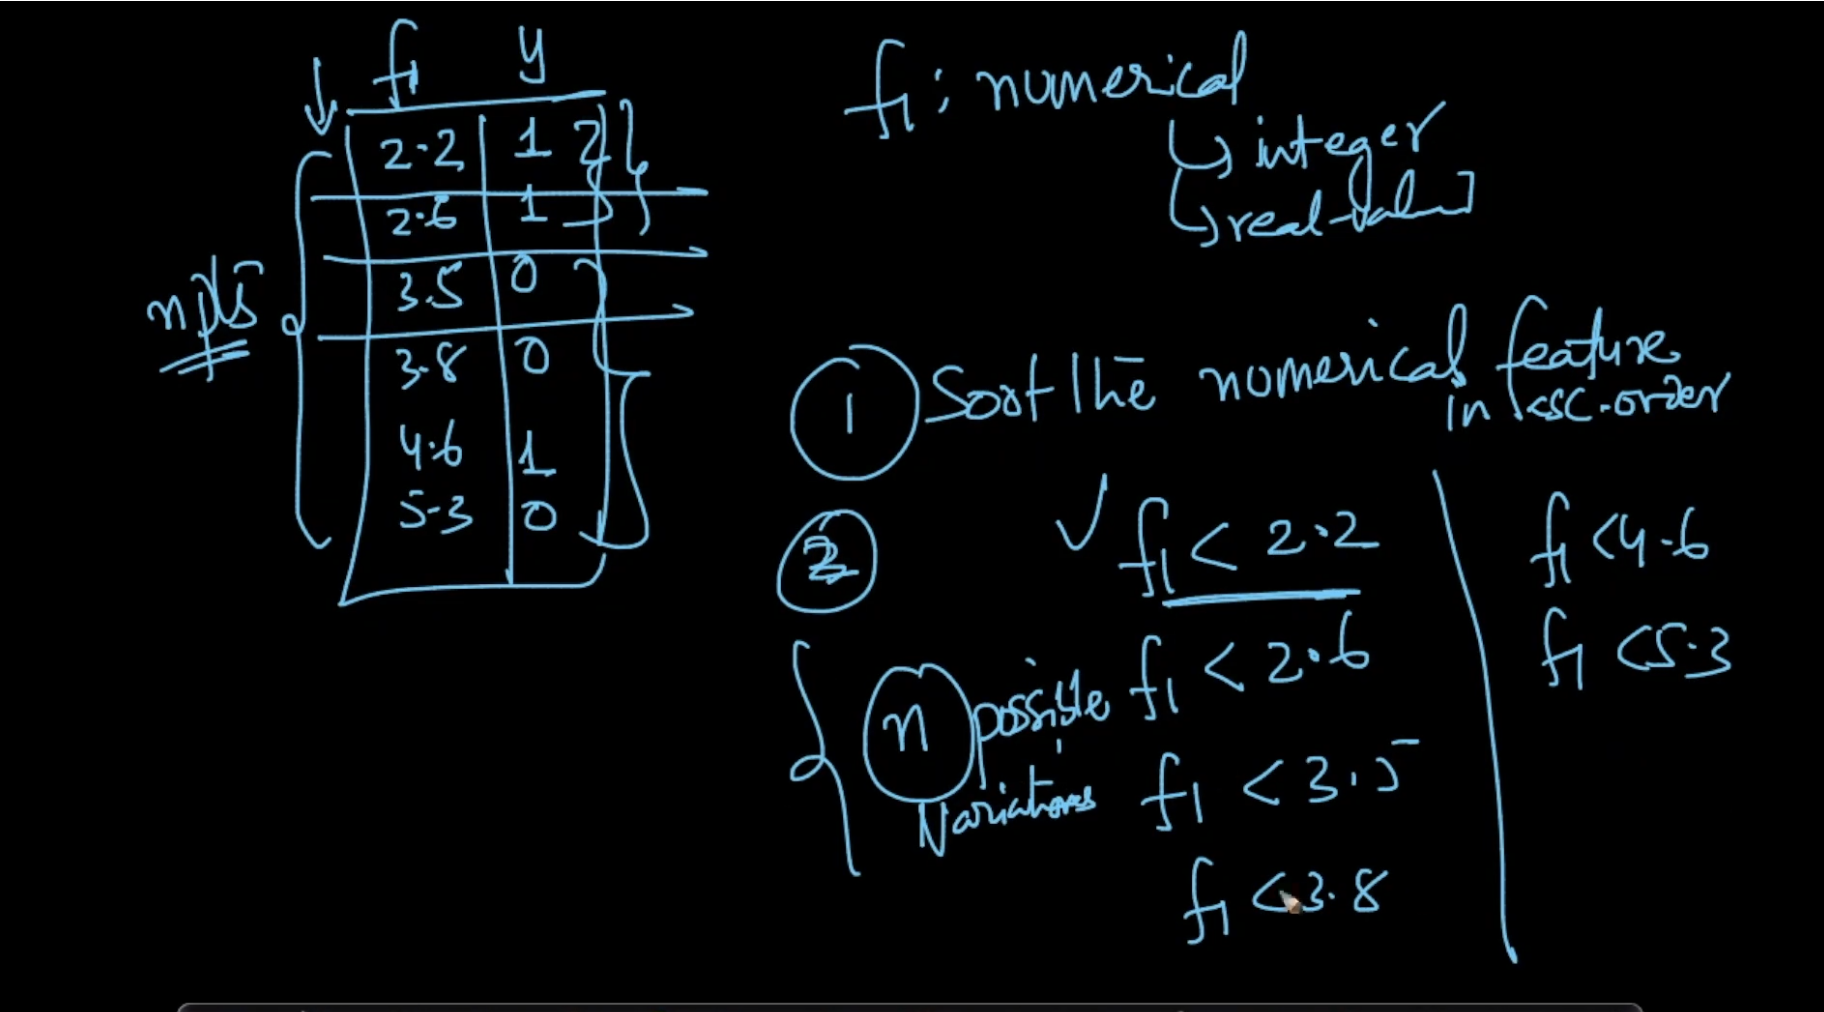 f1 y
2.2 1
2.6 1
3.5 0
3.8 0
4.6 1
5.3 0
n pts
f1: numerical
integer
real-valued
1 Sort the numerical feature
in asc. order
2
f1 < 2.2
f1 < 2.6
n possible
variations
f1 < 3.5
f1 < 3.8
f1 < 4.6
f1 < 5.3